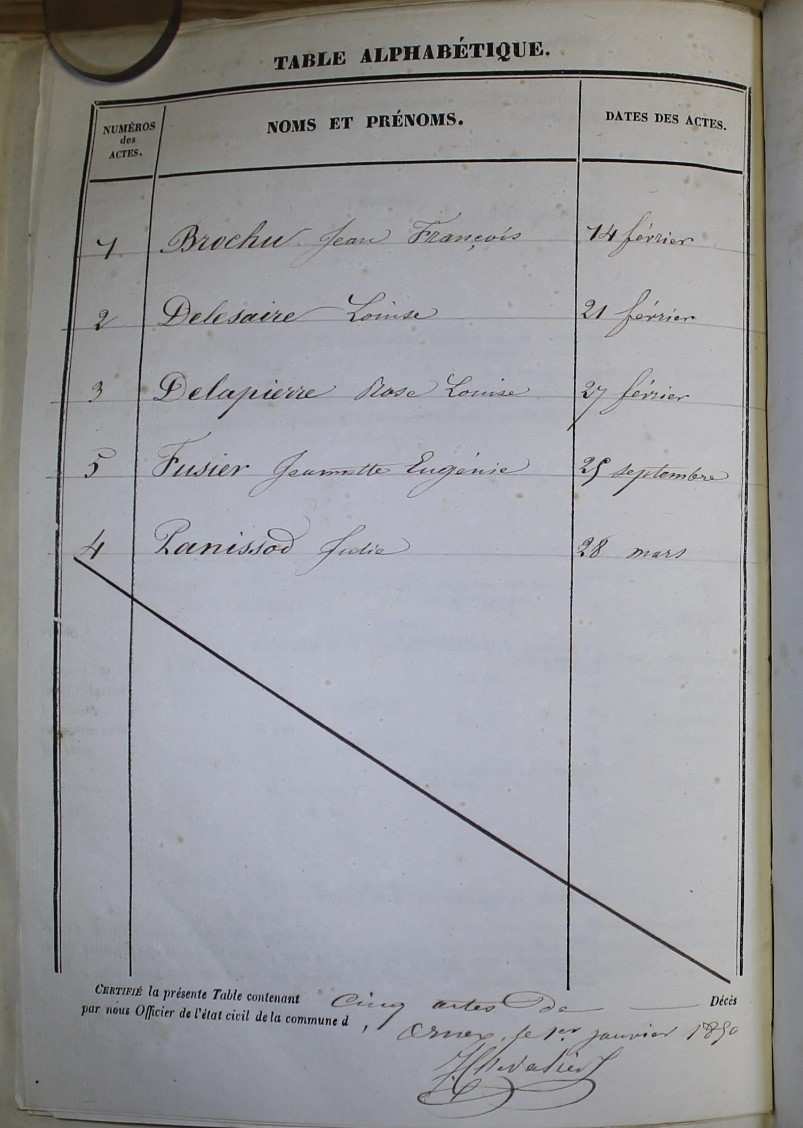 TABLE ALPHABÉTIQUE.
NUMÉROS
des
ACTES.
NOMS ET PRÉNOMS.
DATES DES ACTES.
1 Brochu Jean François 14 février
2 Delesaire Louise 21 février
3 Delapierre Rose Louise 27 février
5 Fusier Jeannette Eugénie 25 septembre
4 Panissod Julie 28 mars
CERTIFIÉ la présente Table contenant cinq actes de Décès
par nous Officier de l'état civil de la commune d'Ornex, le 1er janvier 1850
Chevalier